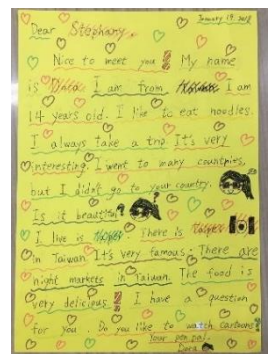 January 19, 2018
Dear Stephany,
Nice to meet you! My name
is I am from I am
14 years old. I like to eat noodles.
I always take a trip. It's very
interesting. I went to many countries,
but I didn't go to your country.
Is it beautiful?
I live in There is
in Taiwan. It's very famous. There are
night markets in Taiwan. The food is
very delicious! I have a question
for you. Do you like to watch cartoons?
Your pen pal,